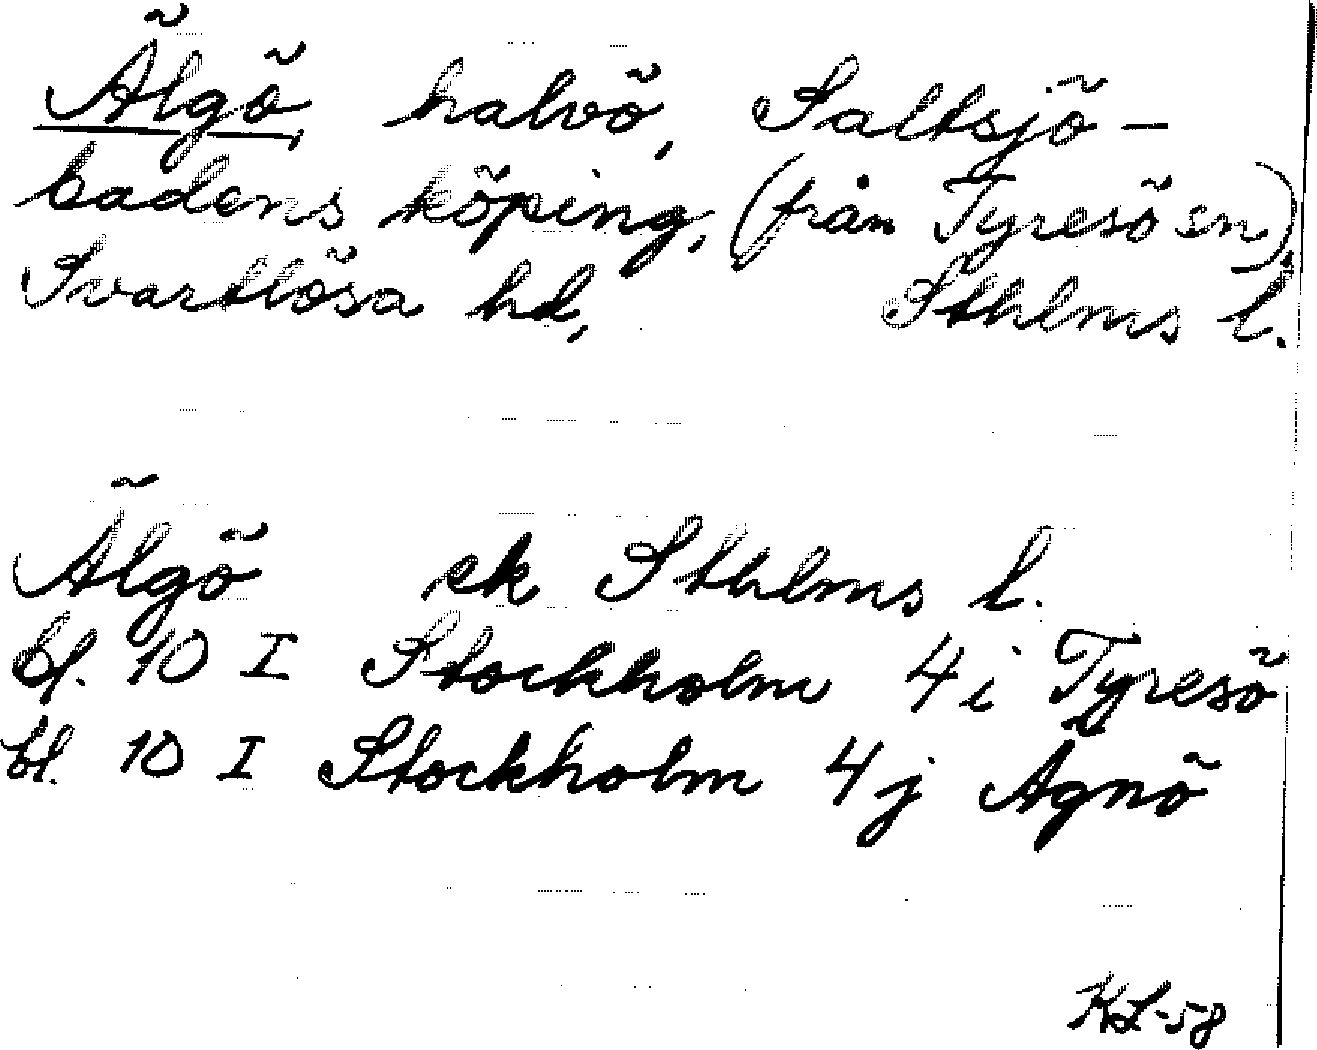 Älgö, halvö, Saltsjö-
badens köping, (från Tyresö sn),
Svartlösa hd, Sthlms l.
Älgö ek Sthlms l.
bl. 10 I Stockholm 4 i Tyresö
bl. 10 I Stockholm 4 j Ägnö
KL-58